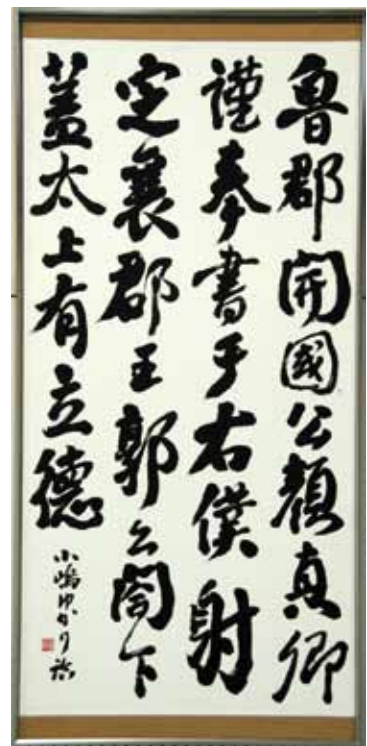 魯郡開國公顏真卿
謹奉書于右僕射
定襄郡王郭公閤下
蓋太上有立德
小嶋ゆかり臨